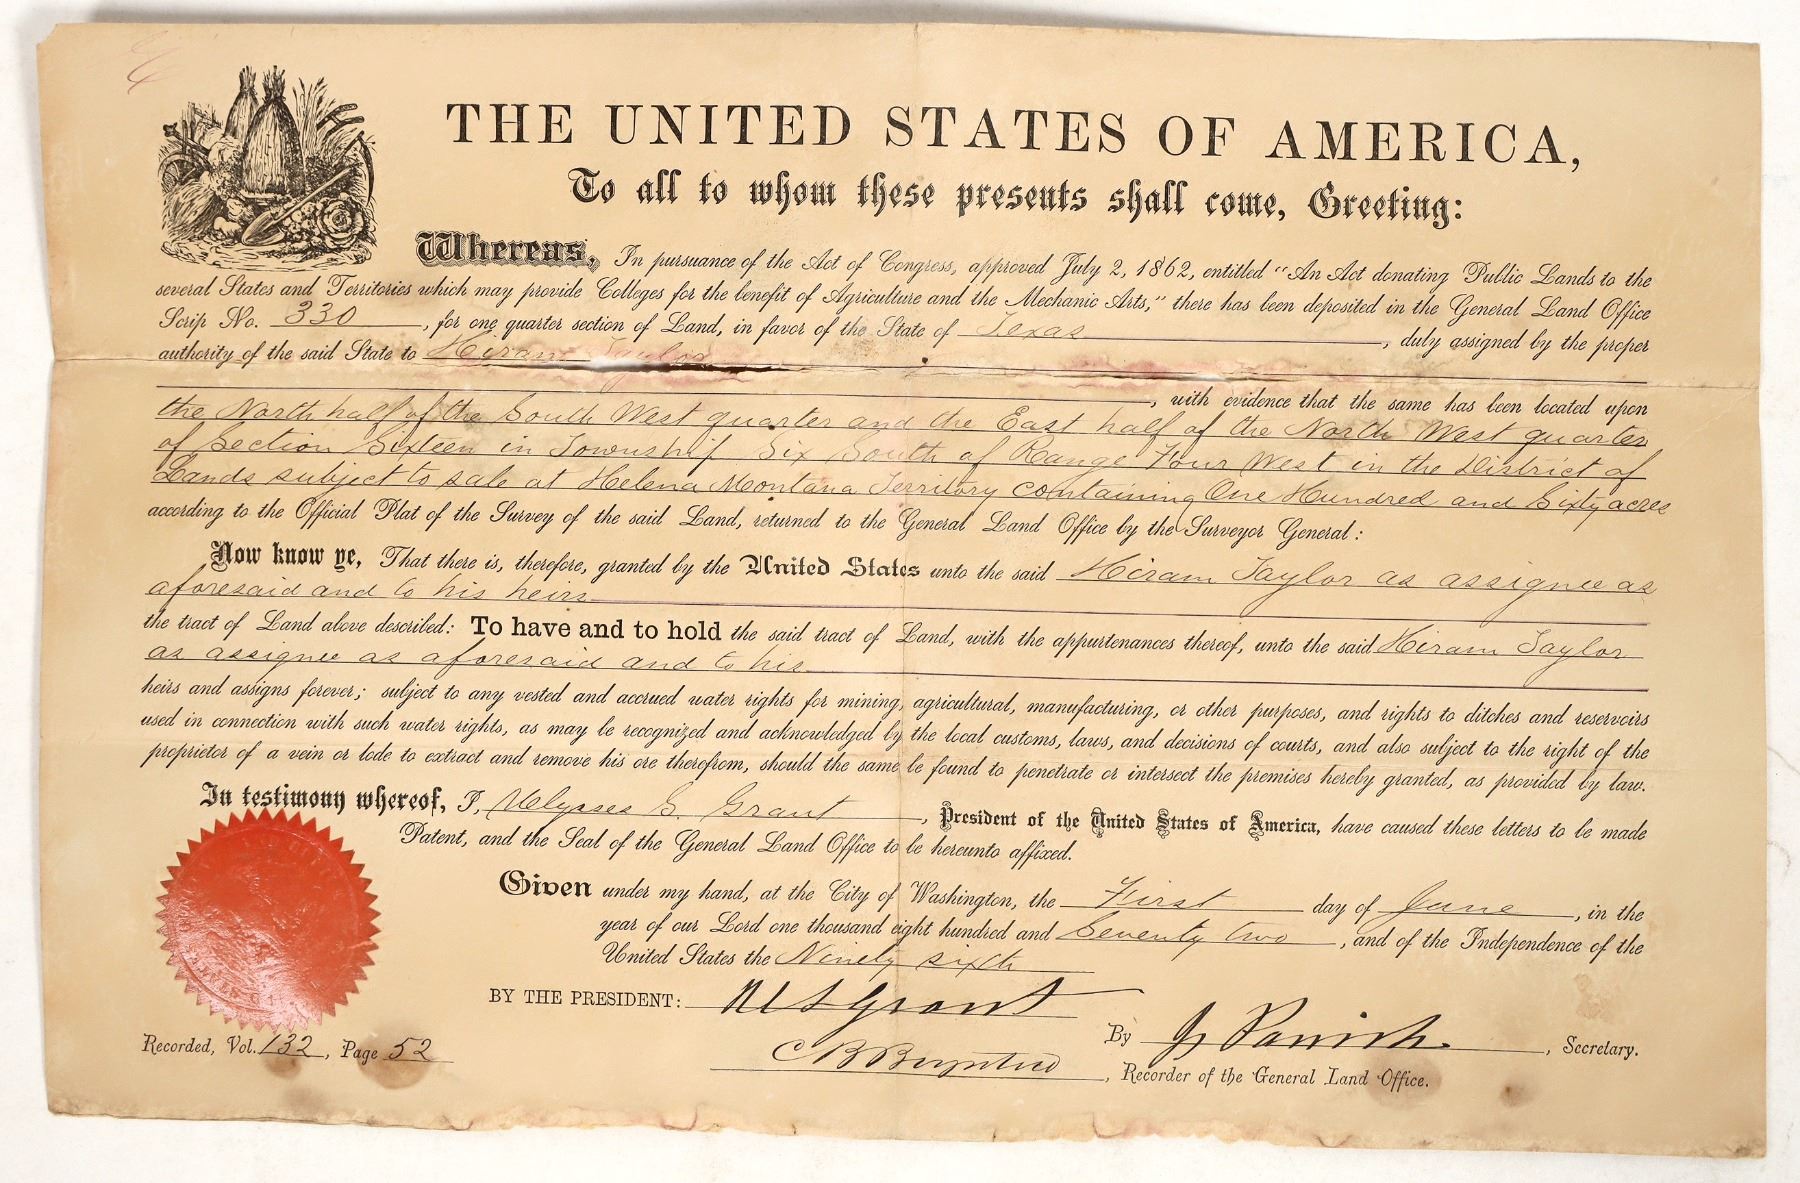 THE UNITED STATES OF AMERICA,
To all to whom these presents shall come, Greeting:
Whereas, In pursuance of the Act of Congress, approved July 2, 1862, entitled "An Act donating Public Lands to the
several States and Territories which may provide Colleges for the benefit of Agriculture and the Mechanic Arts," there has been deposited in the General Land Office
Scrip No. 330, for one quarter section of Land, in favor of the State of Texas, duly assigned by the proper
authority of the said State to Hiram Taylor
, with evidence that the same has been located upon
the North half of the South West quarter and the East half of the North West quarter
of Section Sixteen in Township Six South of Range Four West in the District of
Lands subject to sale at Helena Montana Territory containing One Hundred and Sixty acres
according to the Official Plat of the Survey of the said Land, returned to the General Land Office by the Surveyor General:
Now know ye, That there is, therefore, granted by the United States unto the said Hiram Taylor as assignee as
aforesaid and to his heirs
the tract of Land above described: To have and to hold the said tract of Land, with the appurtenances thereof, unto the said Hiram Taylor
as assignee as aforesaid and to his
heirs and assigns forever; subject to any vested and accrued water rights for mining, agricultural, manufacturing, or other purposes, and rights to ditches and reservoirs
used in connection with such water rights, as may be recognized and acknowledged by the local customs, laws, and decisions of courts, and also subject to the right of the
proprietor of a vein or lode to extract and remove his ore therefrom, should the same be found to penetrate or intersect the premises hereby granted, as provided by law.
In testimony whereof, I, Ulysses S. Grant, President of the United States of America, have caused these letters to be made
Patent, and the Seal of the General Land Office to be hereunto affixed.
Given under my hand, at the City of Washington, the First day of June, in the
year of our Lord one thousand eight hundred and Seventy two, and of the Independence of the
United States the Ninety sixth
BY THE PRESIDENT: U S Grant
By J Parrish, Secretary.
Recorded, Vol. 132, Page 52
C B Boynton, Recorder of the General Land Office.